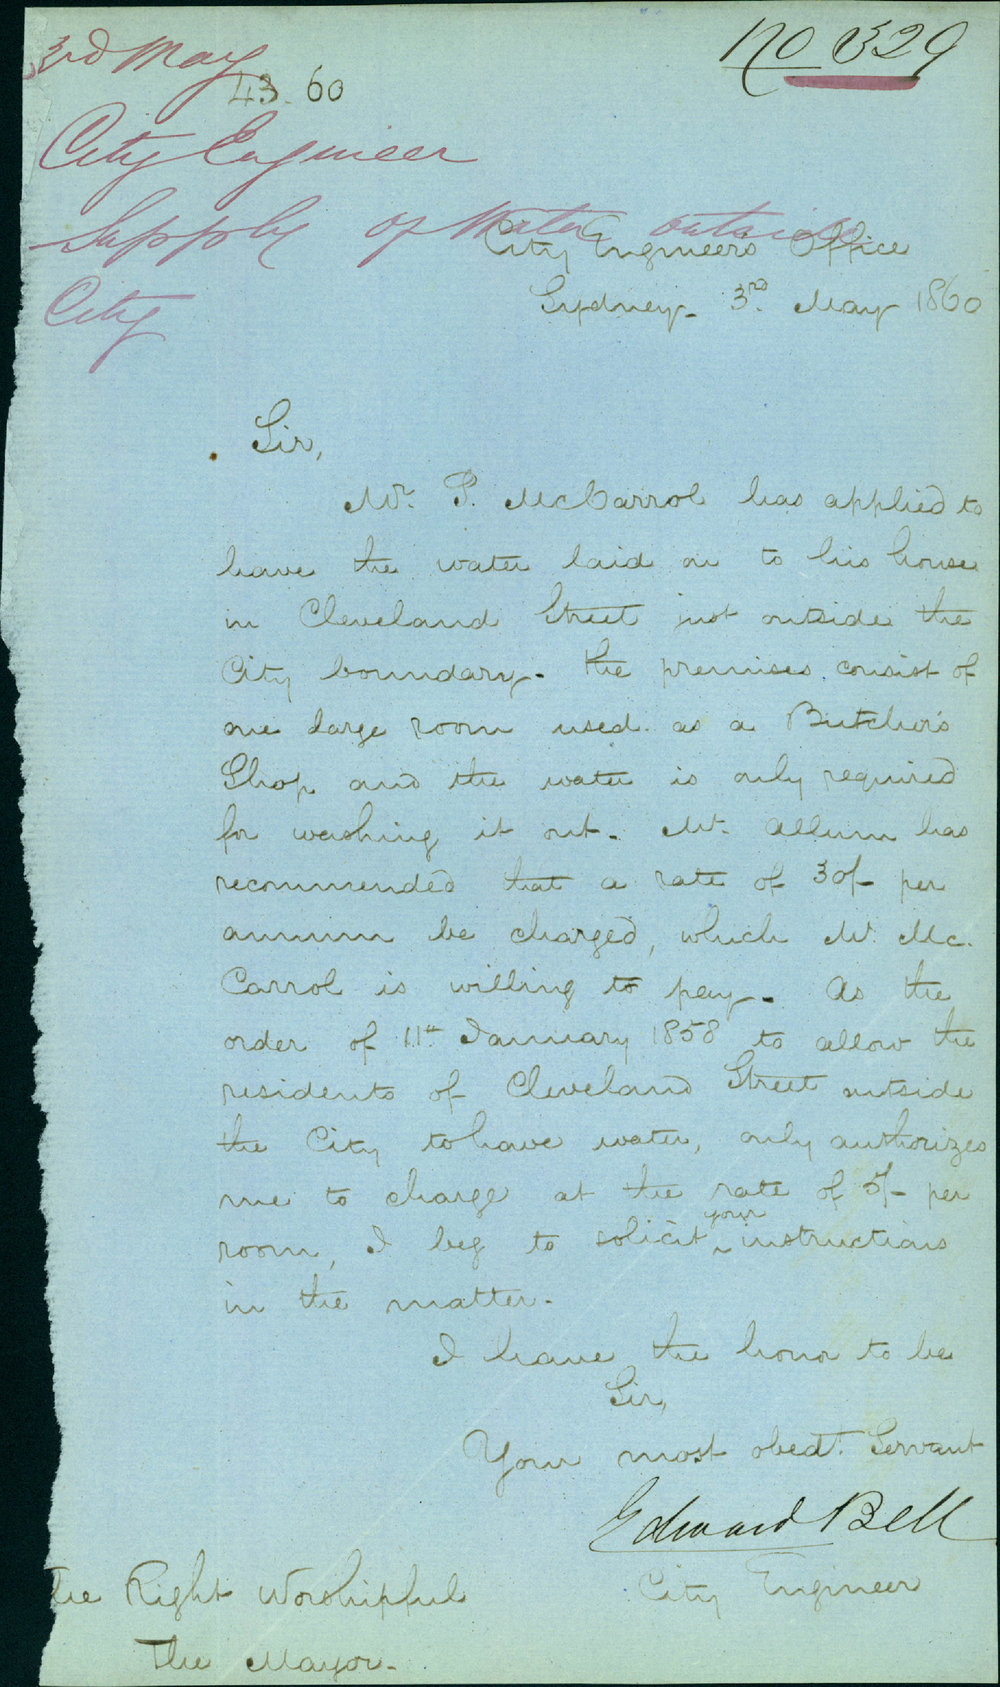 3rd May
No 329
43.60
City Engineer
Supply of Water outside
City
City Engineers Office
Sydney 3rd May 1860
Sir,
Mr. P. McCarrol has applied to
have the water laid on to his house
in Cleveland Street just outside the
City boundary. The premises consist of
one large room used as a Butcher's
Shop and the water is only required
for washing it out. Mr. Allum has
recommended that a rate of 30/- per
annum be charged, which Mr. Mc.
Carrol is willing to pay. As the
order of 11th January 1858 to allow the
residents of Cleveland Street outside
the City to have water, only authorizes
me to charge at the rate of 5/- per
room, I beg to solicit your instructions
in the matter.
I have the honor to be
Sir,
Your most obedt. Servant
Edward Bell
City Engineer
The Right Worshipful
The Mayor.